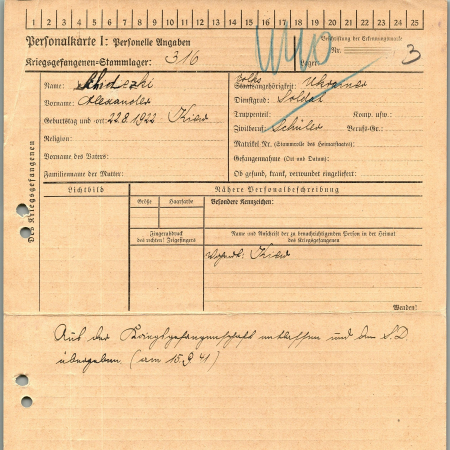 1 2 3 4 5 6 7 8 9 10 11 12 13 14 15 16 17 18 19 20 21 22 23 24 25
Personalkarte I: Personelle Angaben
Beschriftung der Erkennungsmarke
Nr. 3
Kriegsgefangenen-Stammlager: 316
Lager:
Des Kriegsgefangenen
Name:
Vorname: Alexander
Geburtstag und -ort: 22.8.1922 Kiew
Religion:
Vorname des Vaters:
Familienname der Mutter:
Volks
Staatsangehörigkeit: Ukrainer
Dienstgrad: Soldat
Truppenteil: Komp. usw.:
Zivilberuf: Schüler Berufs-Gr.:
Matrikel Nr. (Stammrolle des Heimatstaates):
Gefangennahme (Ort und Datum):
Ob gesund, krank, verwundet eingeliefert:
Lichtbild
Nähere Personalbeschreibung
Größe Haarfarbe
Besondere Kennzeichen:
Fingerabdruck
des rechten! Zeigefingers
Name und Anschrift der zu benachrichtigenden Person in der Heimat
des Kriegsgefangenen
Kiew
Wenden!
Aus der Kriegsgefangenschaft entlassen und dem S.D.
übergeben. (am 15.9.41)